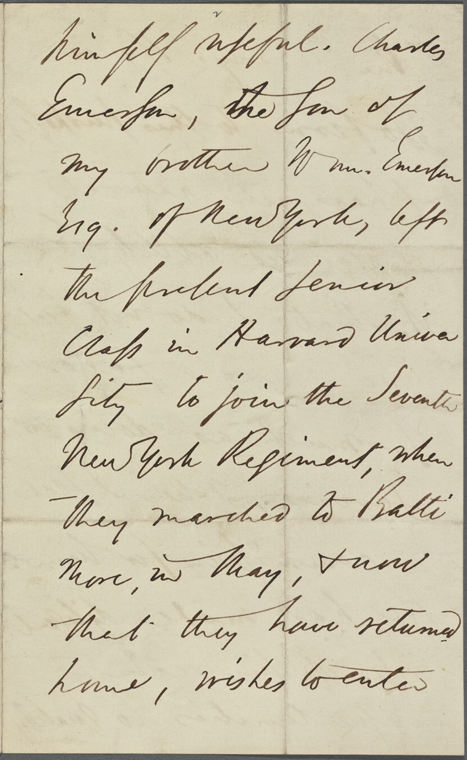 himself useful. Charles
Emerson, the son of
my brother Wm. Emerson
Esq. of New York, left
the present Senior
Class in Harvard Univer
sity to join the Seventh
New York Regiment, when
they marched to Balti
more, in May, & now
that they have returned
home, wishes to enter